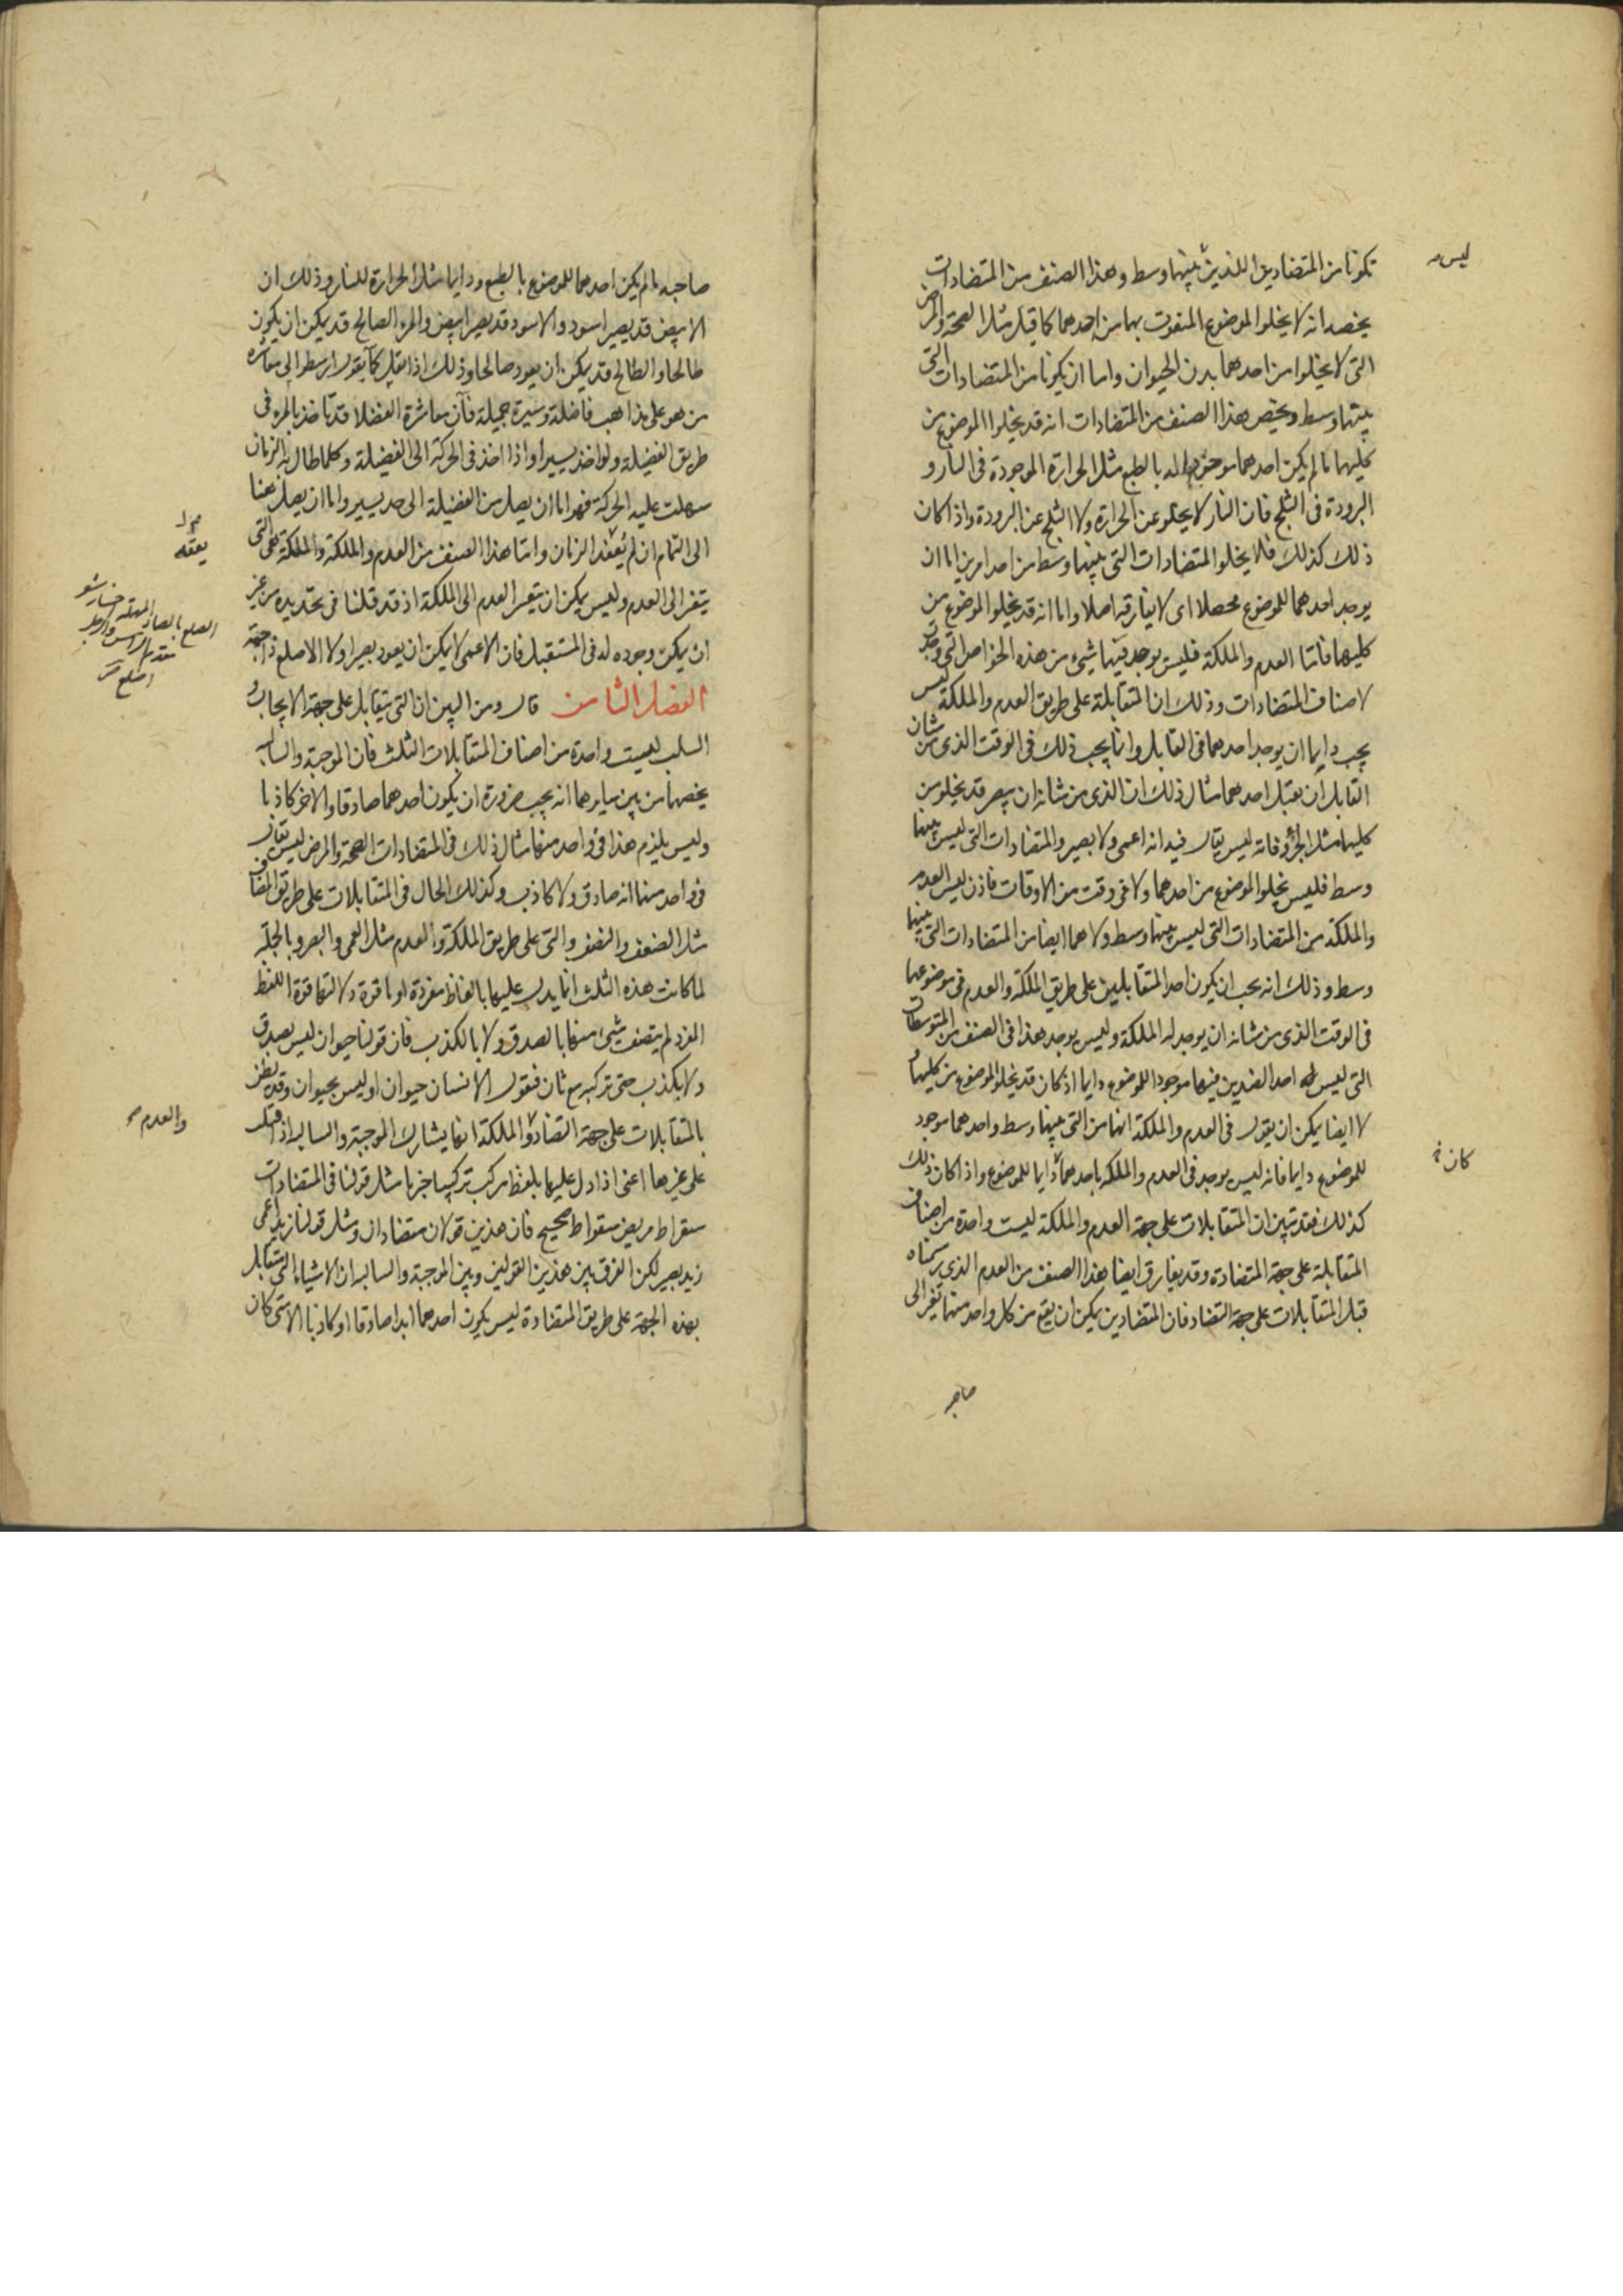 تكونا من المتضادين اللذين بينهما وسط وهذا الصنف من المتضادات
ليس
يخصه انه لا يخلوا الموضوع المنعوت بهما من احدهما كما قيل مثل الصحة والمرض
التى لا يخلوا من احدهما بدن الحيوان واما ان يكونا من المتضادات التى
بينهما وسط ويخص هذا الصنف من المتضادات انه قد يخلوا الموضوع من
كليهما ما لم يكن احدهما موجودا له بالطبع مثل الحرارة الموجودة فى النار و
البرودة فى الثلج فان النار لا يخلو عن الحرارة ولا الثلج عن البرودة واذا كان
ذلك كذلك فلا يخلوا المتضادات التى بينهما وسط من احد امرين اما ان
يوجد احدهما للموضوع محصلا اى لا يفارقه اصلا واما انه قد يخلوا الموضوع من
كليهما فاما العدم والملكة فليس يوجد فيهما شيئ من هذه الخواص التى وجدت
لاصناف المتضادات وذلك ان المتقابلة على طريق العدم والملكة ليس
يجب دايما ان يوجد احدهما فى القابل وانما يجب ذلك فى الوقت الذى من شان
القابل ان يقبل احدهما مثال ذلك ان الذى من شانه ان يبصر قد يخلو من
كليهما مثل الجرو فانه ليس يقال فيه انه اعمى ولا بصير والمتضادات التى ليس بينهما
وسط فليس يخلوا الموضوع من احدهما ولا فى وقت من الاوقات فاذن ليس العدم
والملكة من المتضادات التى ليس بينهما وسط ولا هما ايضا من المتضادات التى بينهما
وسط وذلك انه يجب ان يكون احد المتقابلين على طريق الملكة والعدم فى موضوعهما
فى الوقت الذى من شانه ان يوجد له الملكة وليس يوجد هذا فى الصنف من المتوسطات
التى ليس احد الضدين فيها موجودا للموضوع دايما اذ كان قد يخلو الموضوع من كليهما
لا ايضا يمكن ان يقول فى العدم والملكة انهما من التى بينهما وسط واحدهما موجود
للموضوع دايما فانه ليس يوجد فى العدم والملكة احدهما دايما للموضوع واذا كان ذلك
كان
كذلك فقد تبين ان المتقابلات على جهة العدم والملكة ليست واحدة من اصناف
المتقابلة على جهة المتضادة وقد يفارق ايضا هذا الصنف من العدم الذى رسمناه
قبل المتقابلات على جهة التضاد فان المتضادين يمكن ان يقع من كل واحد منهما تغير الى
صاحبه
صاحبه ما لم يكن احدهما للموضوع بالطبع ودايما مثل الحرارة للنار وذلك ان
الابيض قد يصير اسود والاسود قد يصير ابيض والمرء الصالح قد يمكن ان يكون
طالحا والطالح قد يمكن ان يعود صالحا وذلك اذا نقل كما يقول ارسطو الى معاشرة
من هو على مذاهب فاضلة وسيرة جميلة فان معاشرة الفضلا قد تاخذ بالمرء فى
طريق الفضيلة ولو اخذ يسيرا واذا اخذ فى الحركة الى الفضيلة وكلما طال به الزمان
سهلت عليه الحركة فهو اما ان يصل من الفضيلة الى حد يسير واما ان يصل منها
الى التمام ان لم يعقه الزمان واما هذا الصنف من العدم والملكة والملكة هى التى
يعقه
يتغير الى العدم وليس يمكن ان يتغير العدم الى الملكة اذ قد قلنا فى تحديده من غير
ان يمكن وجوده له فى المستقبل فان الاعمى لا يمكن ان يعود بصيرا ولا الاصلع ذا جمة
الصلع بالصاد المهملة
مقدم الراس والرجل
اصلع
الفصل الثامن قال ومن البين ان التى يتقابل على جهة الايجاب و
السلب ليست واحدة من اصناف المتقابلات الثلث فان الموجبة والسالبة
يخصهما من بين سايرهما انه يجب ضرورة ان يكون احدهما صادقا والاخر كاذبا
وليس يلزم هذا فى واحد منها مثال ذلك فى المتضادات الصحة والمرض ليس يقال
فى واحد منهما انه صادق ولا كاذب وكذلك الحال فى المتقابلات على طريق المضاف
مثل الضعف والنصف والتى على طريق الملكة والعدم مثل العمى والبصر وبالجملة
لما كانت هذه الثلث انما يدل عليها بالفاظ مفردة او ما قوة دلالتها قوة اللفظ
المفرد لم يتصف شيئ منها بالصدق ولا بالكذب فان قولنا حيوان ليس يصدق
ولا يكذب حتى تركبه مع ثان فنقول الانسان حيوان او ليس بحيوان وقد يظن
بالمتقابلات على جهة التضاد والملكة انها يشارك الموجبة والسالبة اذ
والعدم
على غيرها اعنى اذا دل عليهما بلفظ مركب تركيبا خبريا مثل قولنا فى المتضادات
سقراط مريض سقراط صحيح فان هذين قولان متضادان ومثل قولنا زيد اعمى
زيد بصير لكن الفرق بين هذين القولين وبين الموجبة والسالبة ان الاشياء التى يتقابل
بهذه الجهة على طريق المتضادة ليس يكون احدهما ابدا صادقا او كاذبا الا متى كان